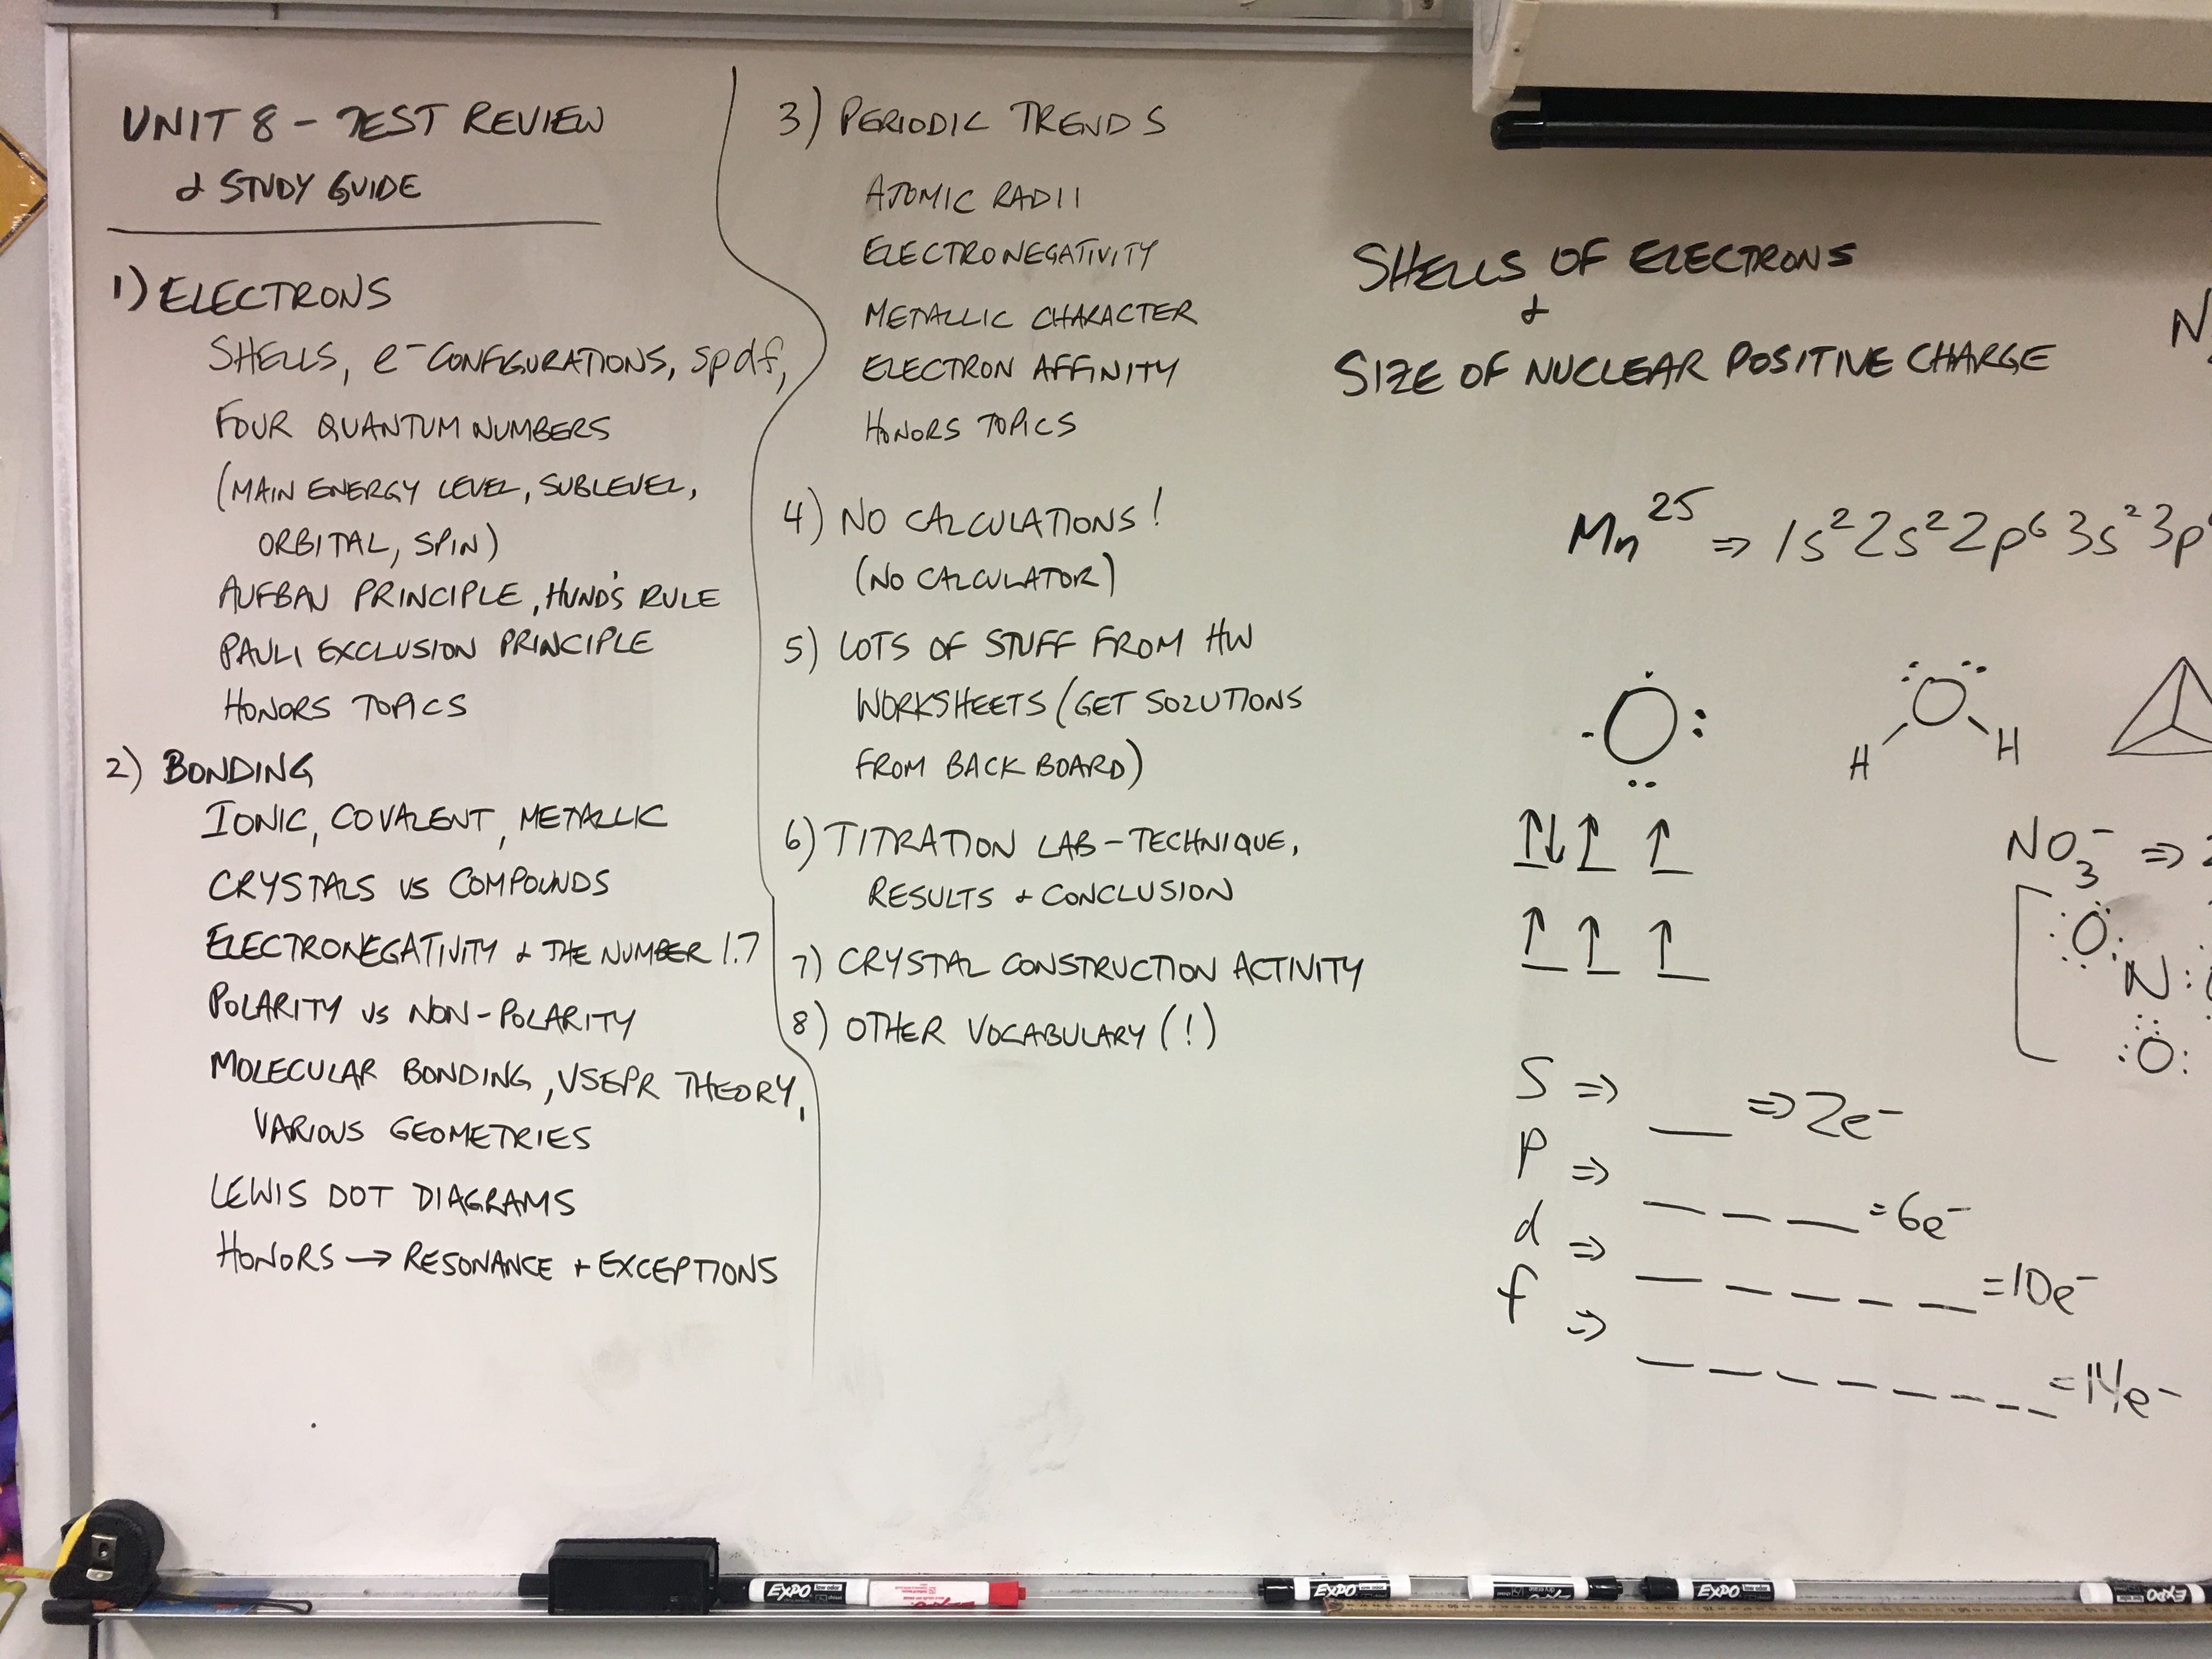 UNIT 8 - TEST REVIEW
& STUDY GUIDE
1) ELECTRONS
SHELLS, e⁻ CONFIGURATIONS, spdf,
FOUR QUANTUM NUMBERS
(MAIN ENERGY LEVEL, SUBLEVEL,
ORBITAL, SPIN)
AUFBAU PRINCIPLE, HUND'S RULE
PAULI EXCLUSION PRINCIPLE
HONORS TOPICS
2) BONDING
IONIC, COVALENT, METALLIC
CRYSTALS VS COMPOUNDS
ELECTRONEGATIVITY & THE NUMBER 1.7
POLARITY VS NON-POLARITY
MOLECULAR BONDING, VSEPR THEORY,
VARIOUS GEOMETRIES
LEWIS DOT DIAGRAMS
HONORS → RESONANCE + EXCEPTIONS
3) PERIODIC TRENDS
ATOMIC RADII
ELECTRONEGATIVITY
METALLIC CHARACTER
ELECTRON AFFINITY
HONORS TOPICS
4) NO CALCULATIONS!
(NO CALCULATOR)
5) LOTS OF STUFF FROM HW
WORKSHEETS (GET SOLUTIONS
FROM BACK BOARD)
6) TITRATION LAB - TECHNIQUE,
RESULTS + CONCLUSION
7) CRYSTAL CONSTRUCTION ACTIVITY
8) OTHER VOCABULARY (!)
SHELLS OF ELECTRONS
&
SIZE OF NUCLEAR POSITIVE CHARGE
N
Mn²⁵ ⇒ 1s²2s²2p⁶3s²3p
O
O
H H
↑↓ ↑ ↑
↑ ↑ ↑
NO₃⁻ ⇒
O
N:
O:
S ⇒ _ ⇒ 2e⁻
p ⇒ _ _ _ = 6e⁻
d ⇒ _ _ _ _ _ = 10e⁻
f ⇒ _ _ _ _ _ _ _ = 14e⁻
EXPO low odor
EXPO
EXPO
EXPO